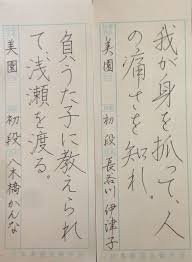 我が身を抓って、人
の痛さを知れ。
美園 初段 長谷川伊津子
負うた子に教えられ
て、浅瀬を渡る。
美園 初段 八木橋かんな